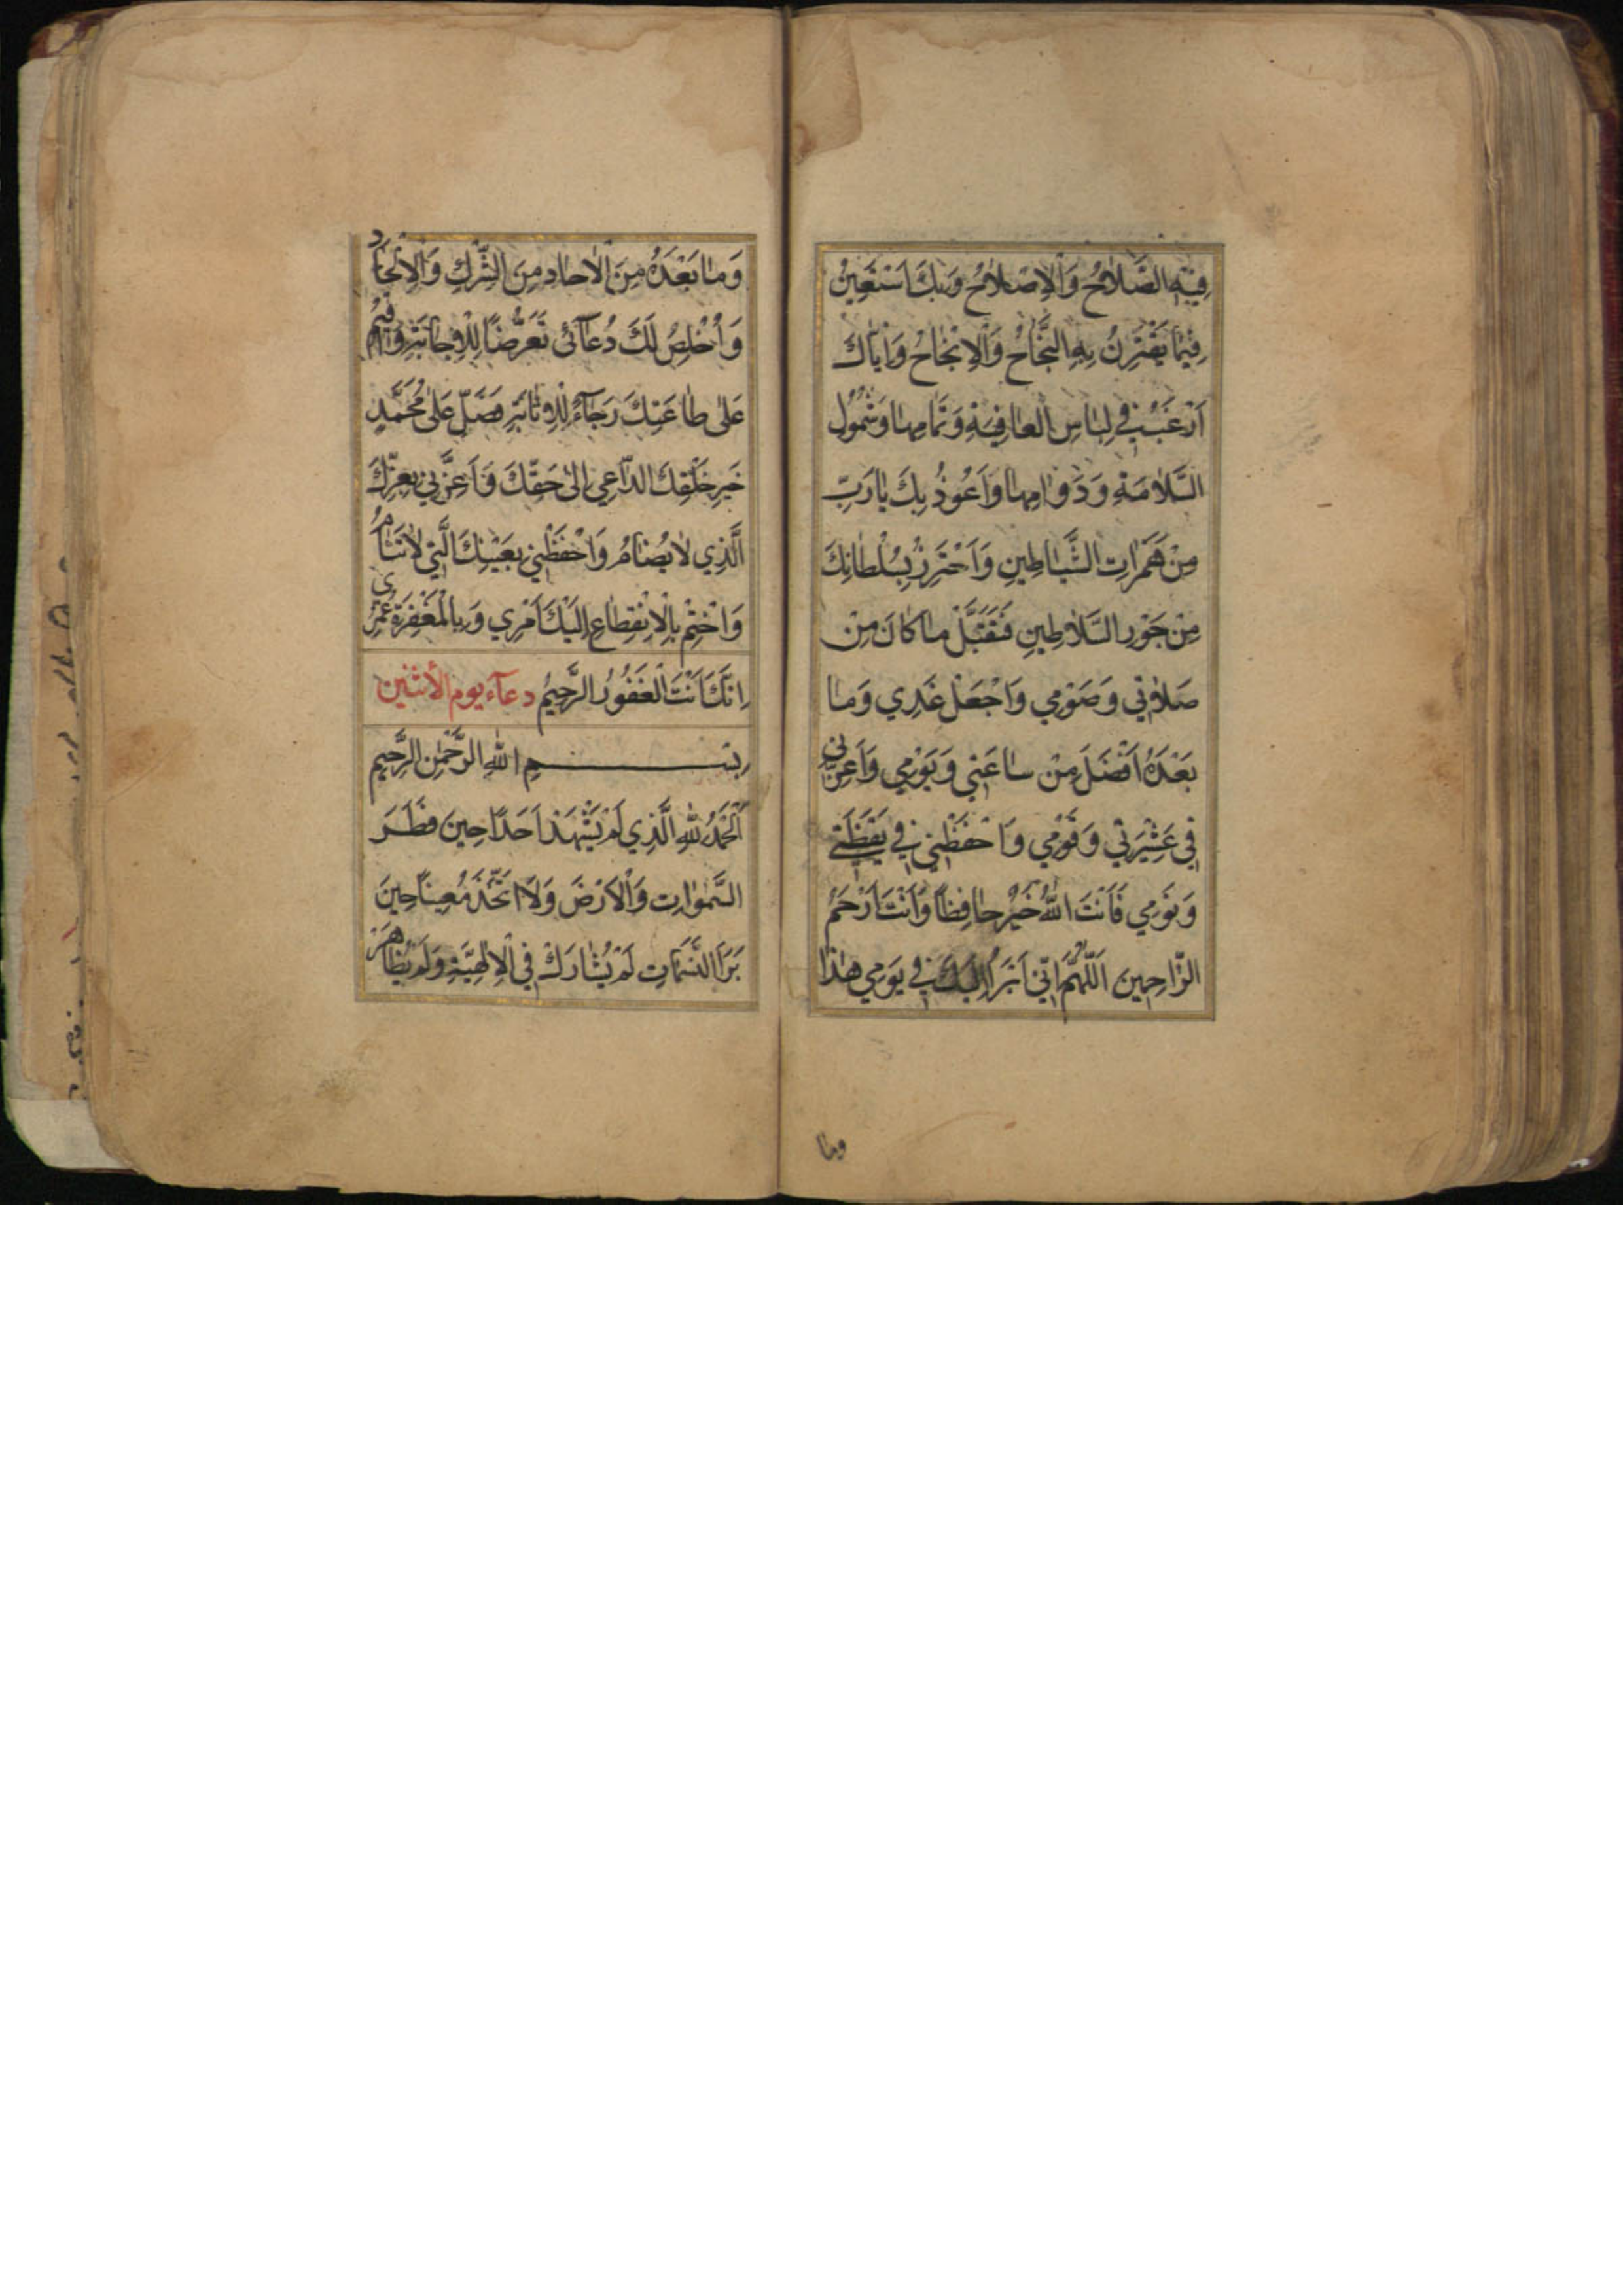 فِيهِ الصَّلَاحُ وَالْاِصْلَاحُ وَبِكَ اَسْتَعِينُ
فِيمَا يَقْتَرِنُ بِهِ النَّجَاحُ وَالْاِنْجَاحُ وَاِيَّاكَ
اَرْغَبُ فِي لِبَاسِ الْعَافِيَةِ وَتَمَامِهَا وَشُمُولِ
السَّلَامَةِ وَدَوَامِهَا وَاَعُوذُ بِكَ يَا رَبِّ
مِنْ هَمَزَاتِ الشَّيَاطِينِ وَاَحْتَرِزُ بِسُلْطَانِكَ
مِنْ جَوْرِ السَّلَاطِينِ فَتَقَبَّلْ مَا كَانَ مِنْ
صَلَاتِي وَصَوْمِي وَاجْعَلْ غَدِي وَمَا
بَعْدَهُ اَفْضَلَ مِنْ سَاعَتِي وَيَوْمِي وَاَعِزَّنِي
فِي عَشِيْرَتِي وَقَوْمِي وَاحْفَظْنِي فِي يَقْظَتِي
وَنَوْمِي فَاَنْتَ اللّٰهُ خَيْرٌ حَافِظًا وَاَنْتَ اَرْحَمُ
الرَّاحِمِينَ اَللّٰهُمَّ اِنِّي اَبْرَأُ اِلَيْكَ فِي يَوْمِي هٰذَا
وما
وَمَا بَعْدَهُ مِنَ الْاٰحَادِ مِنَ الشِّرْكِ وَالْاِلْحَادِ
وَاُخْلِصُ لَكَ دُعَائِي تَعَرُّضًا لِلْاِجَابَةِ وَاُقِيمُ
عَلٰى طَاعَتِكَ رَجَاءً لِلْاِثَابَةِ فَصَلِّ عَلٰى مُحَمَّدٍ
خَيْرِ خَلْقِكَ الدَّاعِي اِلٰى حَقِّكَ وَاَعِزَّنِي بِعِزِّكَ
الَّذِي لَا يُضَامُ وَاحْفَظْنِي بِعَيْنِكَ الَّتِي لَا تَنَامُ
وَاخْتِمْ بِالْاِنْقِطَاعِ اِلَيْكَ اَمْرِي وَبِالْمَغْفِرَةِ عُمْرِي
اِنَّكَ اَنْتَ الْغَفُورُ الرَّحِيمُ دعاء يوم الأثنين
بِسْمِ اللّٰهِ الرَّحْمٰنِ الرَّحِيمِ
اَلْحَمْدُ لِلّٰهِ الَّذِي لَمْ يُشْهِدْ اَحَدًا حِينَ فَطَرَ
السَّمٰوَاتِ وَالْاَرْضَ وَلَا اتَّخَذَ مُعِينًا حِينَ
بَرَأَ النَّسَمَاتِ لَمْ يُشَارَكْ فِي الْاِلٰهِيَّةِ وَلَمْ يُظَاهَرْ